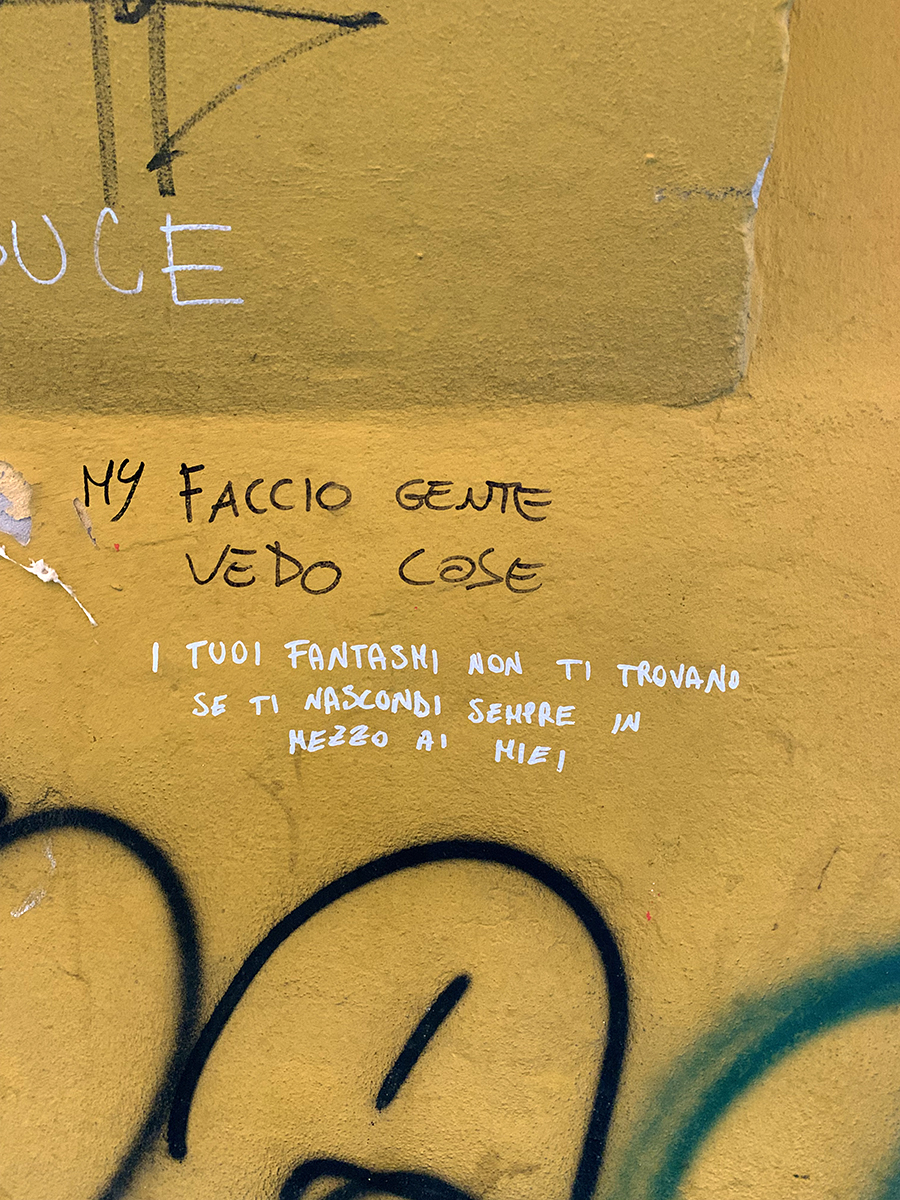 UCE
MY FACCIO GENTE
VEDO COSE
I TUOI FANTASMI NON TI TROVANO
SE TI NASCONDI SEMPRE IN
MEZZO AI MIEI